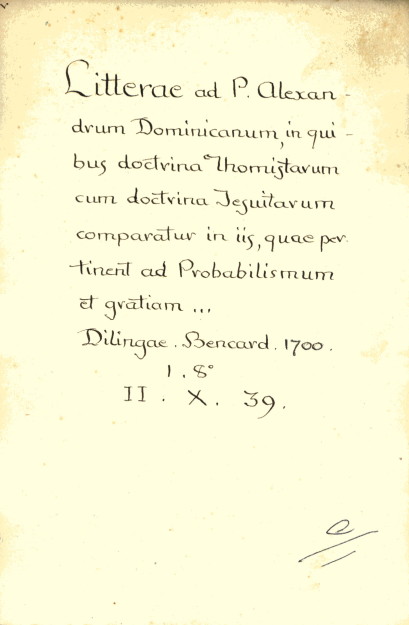 Litterae ad P. Alexan-
drum Dominicanum, in qui-
bus doctrina Thomistarum
cum doctrina Jesuitarum
comparatur in iis, quae per
tinent ad Probabilismum
et gratiam ...
Dilingae. Bencard. 1700.
1. 8°
II. X. 39.